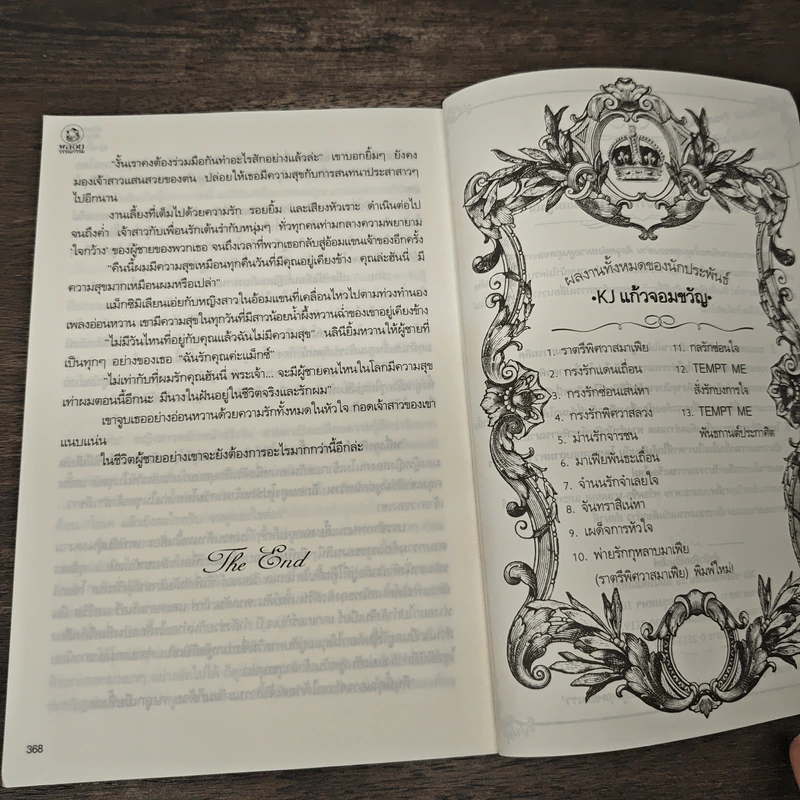 พลอย
วรรณกรรม
"งั้นเราคงต้องร่วมมือกันทำอะไรสักอย่างแล้วล่ะ" เขาบอกยิ้มๆ ยังคง
มองเจ้าสาวแสนสวยของตน ปล่อยให้เธอมีความสุขกับการสนทนาประสาสาวๆ
ไปอีกนาน
งานเลี้ยงที่เต็มไปด้วยความรัก รอยยิ้ม และเสียงหัวเราะ ดำเนินต่อไป
จนถึงค่ำ เจ้าสาวกับเพื่อนรักเต้นรำกับหนุ่มๆ ทั่วทุกคนท่ามกลางความพยายาม
'ใจกว้าง' ของผู้ชายของพวกเธอ จนถึงเวลาที่พวกเธอกลับสู่อ้อมแขนเจ้าของอีกครั้ง
"คืนนี้ผมมีความสุขเหมือนทุกคืนวันที่มีคุณอยู่เคียงข้าง คุณล่ะฮันนี่ มี
ความสุขมากเหมือนผมหรือเปล่า"
แม็กซิมิเลียนเอ่ยกับหญิงสาวในอ้อมแขนที่เคลื่อนไหวไปตามท่วงทำนอง
เพลงอ่อนหวาน เขามีความสุขในทุกวันที่มีสาวน้อยน้ำผึ้งหวานฉ่ำของเขาอยู่เคียงข้าง
"ไม่มีวันไหนที่อยู่กับคุณแล้วฉันไม่มีความสุข" นลินียิ้มหวานให้ผู้ชายที่
เป็นทุกๆ อย่างของเธอ "ฉันรักคุณค่ะแม็กซ์"
"ไม่เท่ากับที่ผมรักคุณฮันนี่ พระเจ้า... จะมีผู้ชายคนไหนในโลกมีความสุข
เท่าผมตอนนี้อีกนะ มีนางในฝันอยู่ในชีวิตจริงและรักผม"
เขาจูบเธออย่างอ่อนหวานด้วยความรักทั้งหมดในหัวใจ กอดเจ้าสาวของเขา
แนบแน่น
ในชีวิตผู้ชายอย่างเขาจะยังต้องการอะไรมากกว่านี้อีกล่ะ
The End
368
ผลงานทั้งหมดของนักประพันธ์
•KJ แก้วจอมขวัญ•
1. ราตรีพิศวาสมาเฟีย
2. กรงรักแดนเถื่อน
3. กรงรักซ่อนเสน่หา
4. กรงรักพิศวาสลวง
5. ม่านรักจารชน
6. มาเฟียพันธะเถื่อน
7. จำนนรักจำเลยใจ
8. จันทราสิเน่หา
9. เผด็จการหัวใจ
10. พ่ายรักกุหลาบมาเฟีย
(ราตรีพิศวาสมาเฟีย) พิมพ์ใหม่!
11. กลรักซ่อนใจ
12. TEMPT ME
สั่งรักบงการใจ
13. TEMPT ME
พันธกานต์ประกาศิต